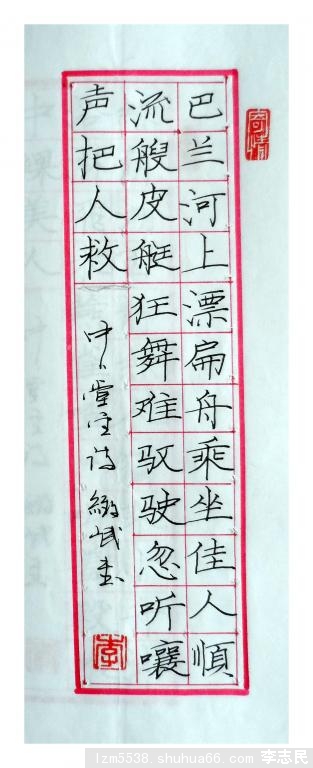 寄情
巴兰河上漂扁舟乘坐佳人順
流艘皮艇狂舞难驭驶忽听嚷
声把人救
堂 诗
李
lzm5538.shuhua66.com 李志民